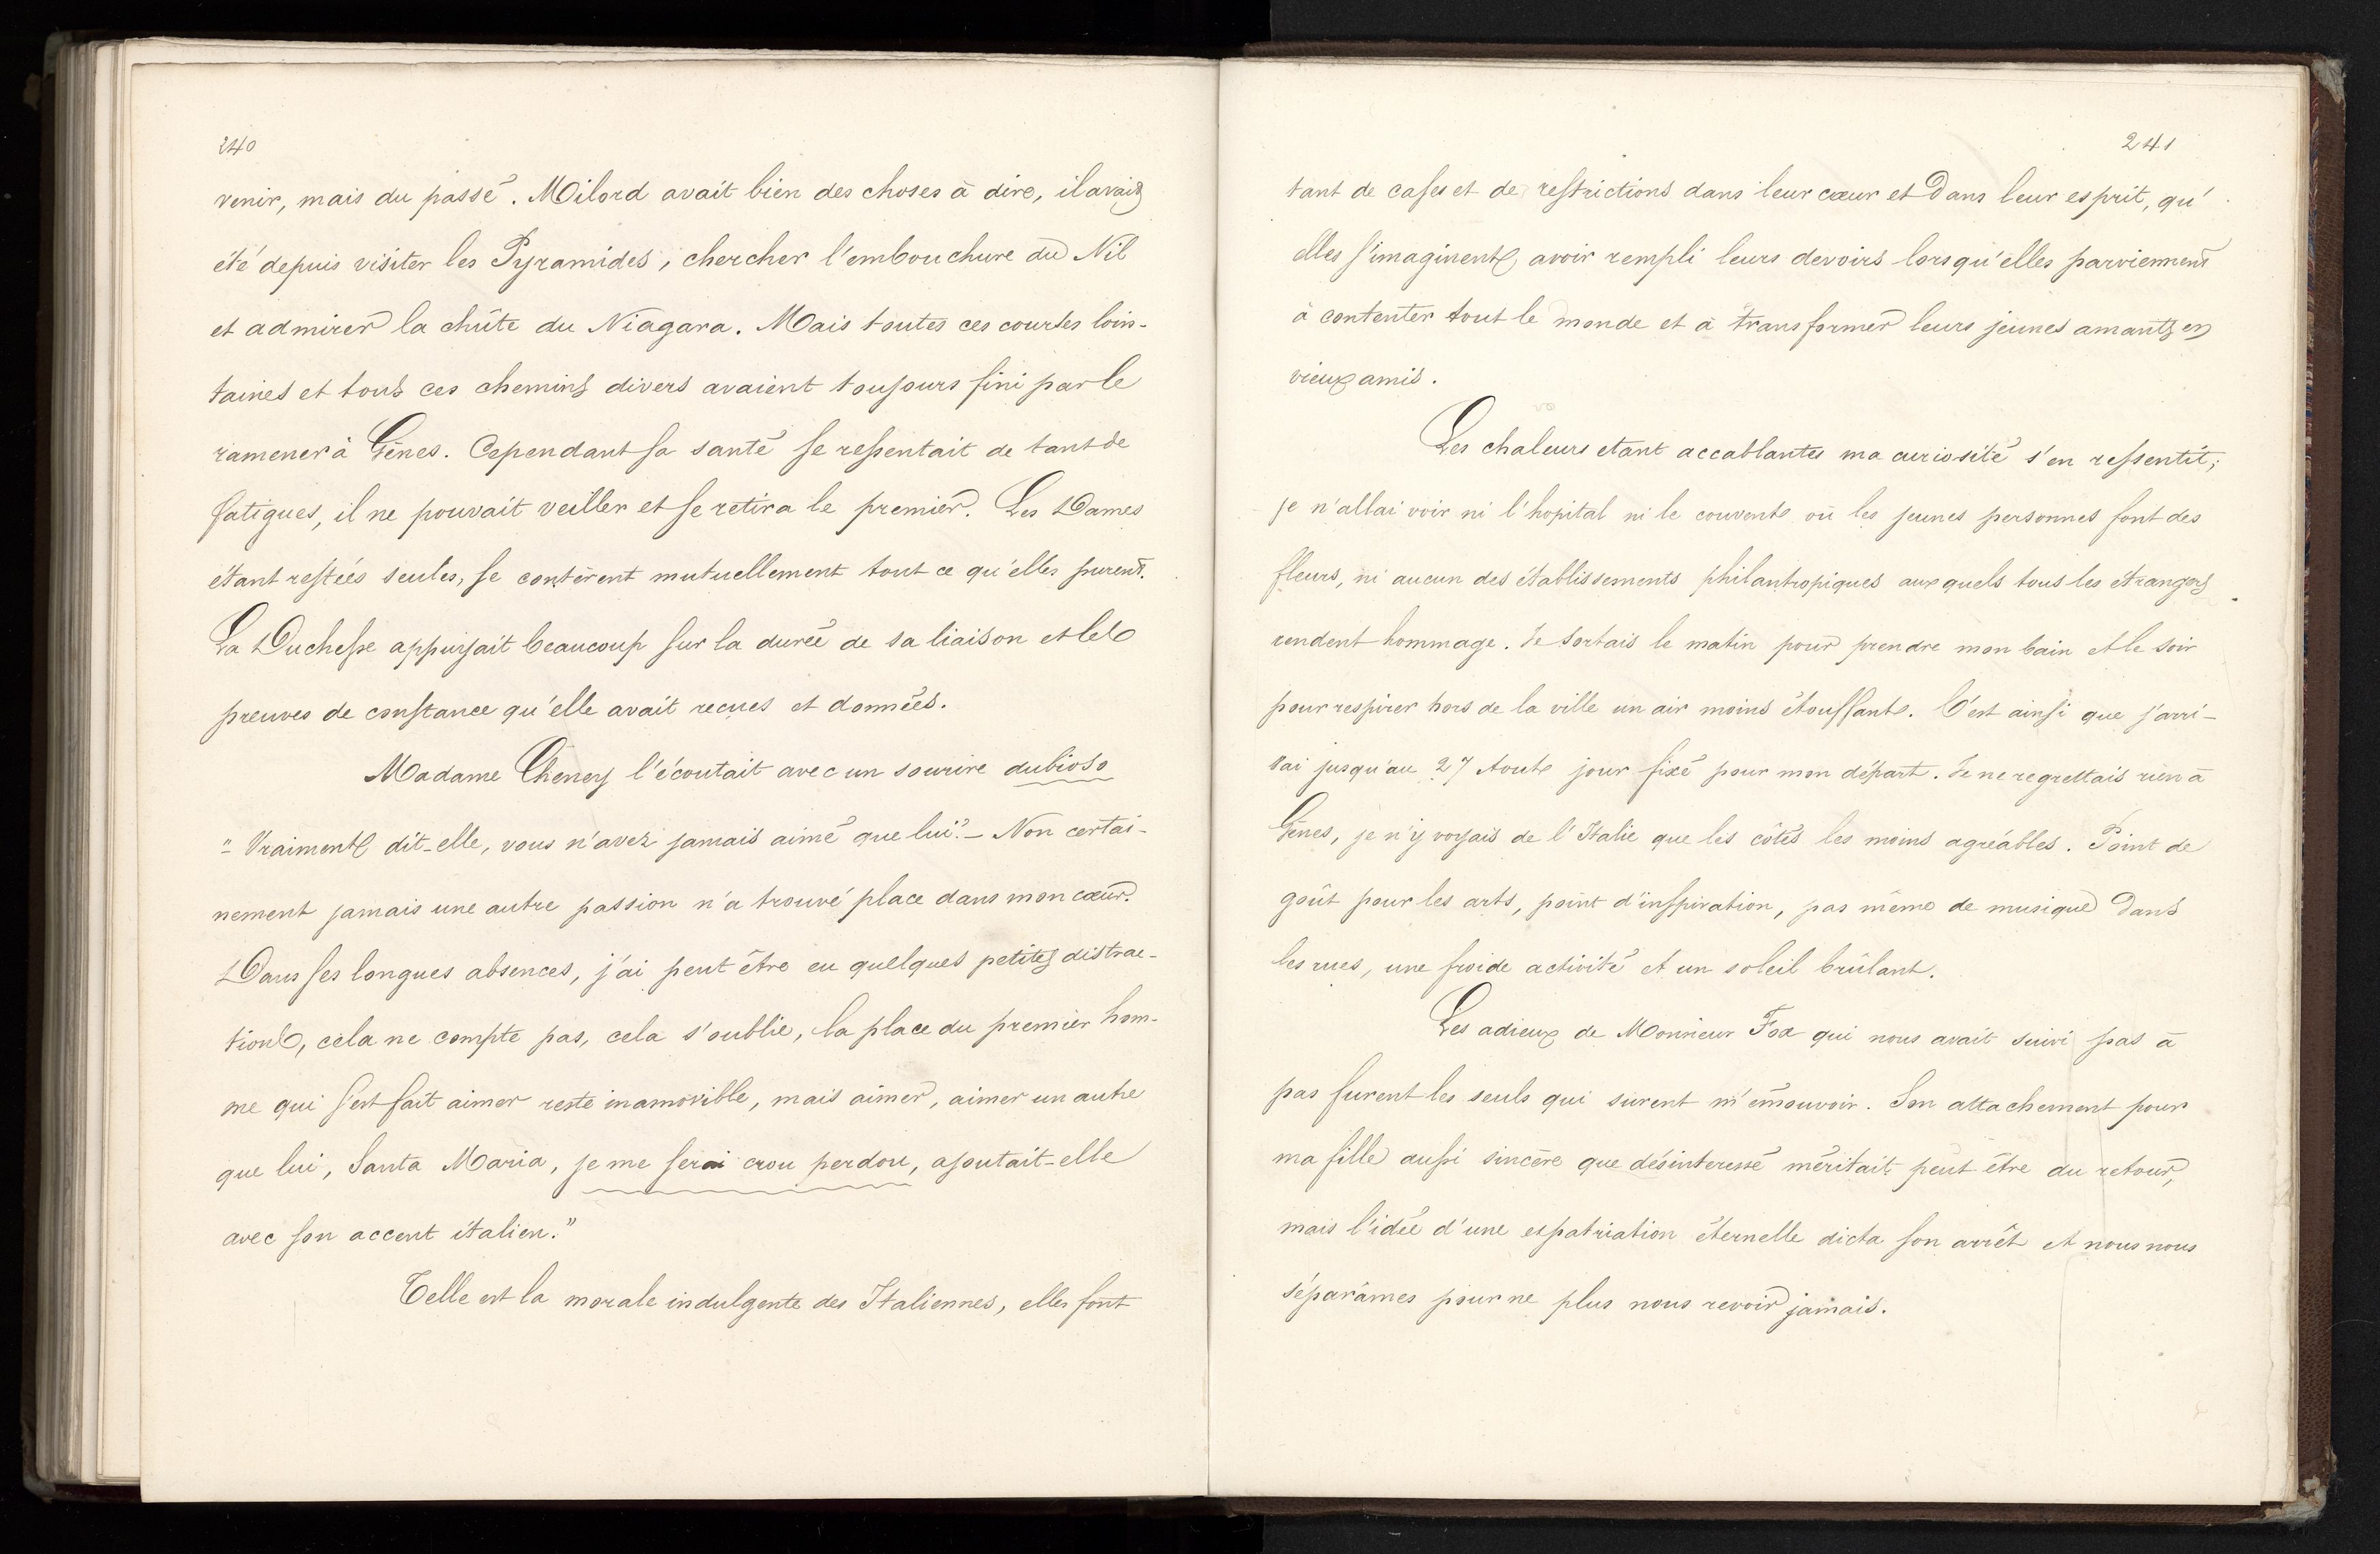 240
venir, mais du passé. Milord avait bien des choses à dire, il avait
été depuis visiter les Pyramides, chercher l'embouchure du Nil
et admirer la chûte du Niagara. Mais toutes ces courses loin-
taines et tous ces chemins divers avaient toujours fini par le
ramener à Gênes. Cependant sa santé se ressentait de tant de
fatigues, il ne pouvait veiller et se retira le premier. Les Dames
étant restées seules, se contèrent mutuellement tout ce qu'elles purent.
La Duchesse appuyait beaucoup sur la durée de sa liaison et les
preuves de constance qu'elle avait recues et données.
Madame Cheney l'écoutait avec un sourire dubioso
"Vraiment dit-elle, vous n'avez jamais aimé que lui?- Non certai-
nement jamais une autre passion n'a trouvé place dans mon cœur.
Dans ses longues absences, j'ai peut être eu quelques petites distrac-
tions, cela ne compte pas, cela s'oublie, la place du premier hom-
me qui s'est fait aimer reste inamovible, mais aimer, aimer un autre
que lui, Santa Maria, je me serai crou perdou, ajoutait-elle
avec son accent italien."
Telle est la morale indulgente des Italiennes, elles font
241
tant de cases et de restrictions dans leur cœur et dans leur esprit, qu'
elles s'imaginent avoir rempli leurs devoirs lorsqu'elles parviennent
à contenter tout le monde et à transformer leurs jeunes amants en
vieux amis.
Les chaleurs etant accablantes ma curiosité s'en ressentit;
je n'allai voir ni l'hopital ni le couvent où les jeunes personnes font des
fleurs, ni aucun des établissements philantropiques aux quels tous les étrangers
rendent hommage. Je sortais le matin pour prendre mon bain et le soir
pour respirer hors de la ville un air moins étouffant. C'est ainsi que j'arri-
vai jusqu'au 27 Aout jour fixé pour mon départ. Je ne regrettais rien à
Gênes, je n'y voyais de l'Italie que les côtés les moins agréables. Point de
goût pour les arts, point d'inspiration, pas même de musique dans
les rues, une froide activité et un soleil brûlant.
Les adieux de Monsieur Fox qui nous avait suivi pas à
pas furent les seuls qui surent m'émouvoir. Son attachement pour
ma fille aussi sincère que désinteressé méritait peut être du retour,
mais l'idée d'une expatriation éternelle dicta son arrêt et nous nous
séparâmes pour ne plus nous revoir jamais.